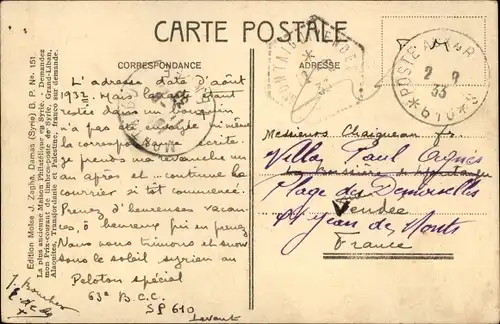 CARTE POSTALE
CORRESPONDANCE
ADRESSE
Edition Moïse J. Zagha, Damas (Syrie) B. P. No. 151
La plus ancienne Maison Philatélique en Syrie. Demandez
mon Prix-courant de timbres-poste de Syrie, Grand-Liban,
Alaouites, Transjordanie et Palestine, franco sur demande.
L'adresse date d'août
1932. Mais la carte étant
restée dans un bouquin
n'a pas été envoyée ni même
la correspondance écrite
je prends ma revanche un
an après et ... continue le
courrier si tôt commencé.
Prenez d'heureuses vacances
ô, heureux qui en prenez
Nous nous trimons et
sous le soleil syrien au
Peloton spécial
63e B.C.C.
SP 610
Levant
POSTE AUX AR
2 9
33
*615*
Messieurs Chaigneau fr.
Villa Paul Agnès
Plage des Demoiselles
Vendée
St Jean de Monts
France